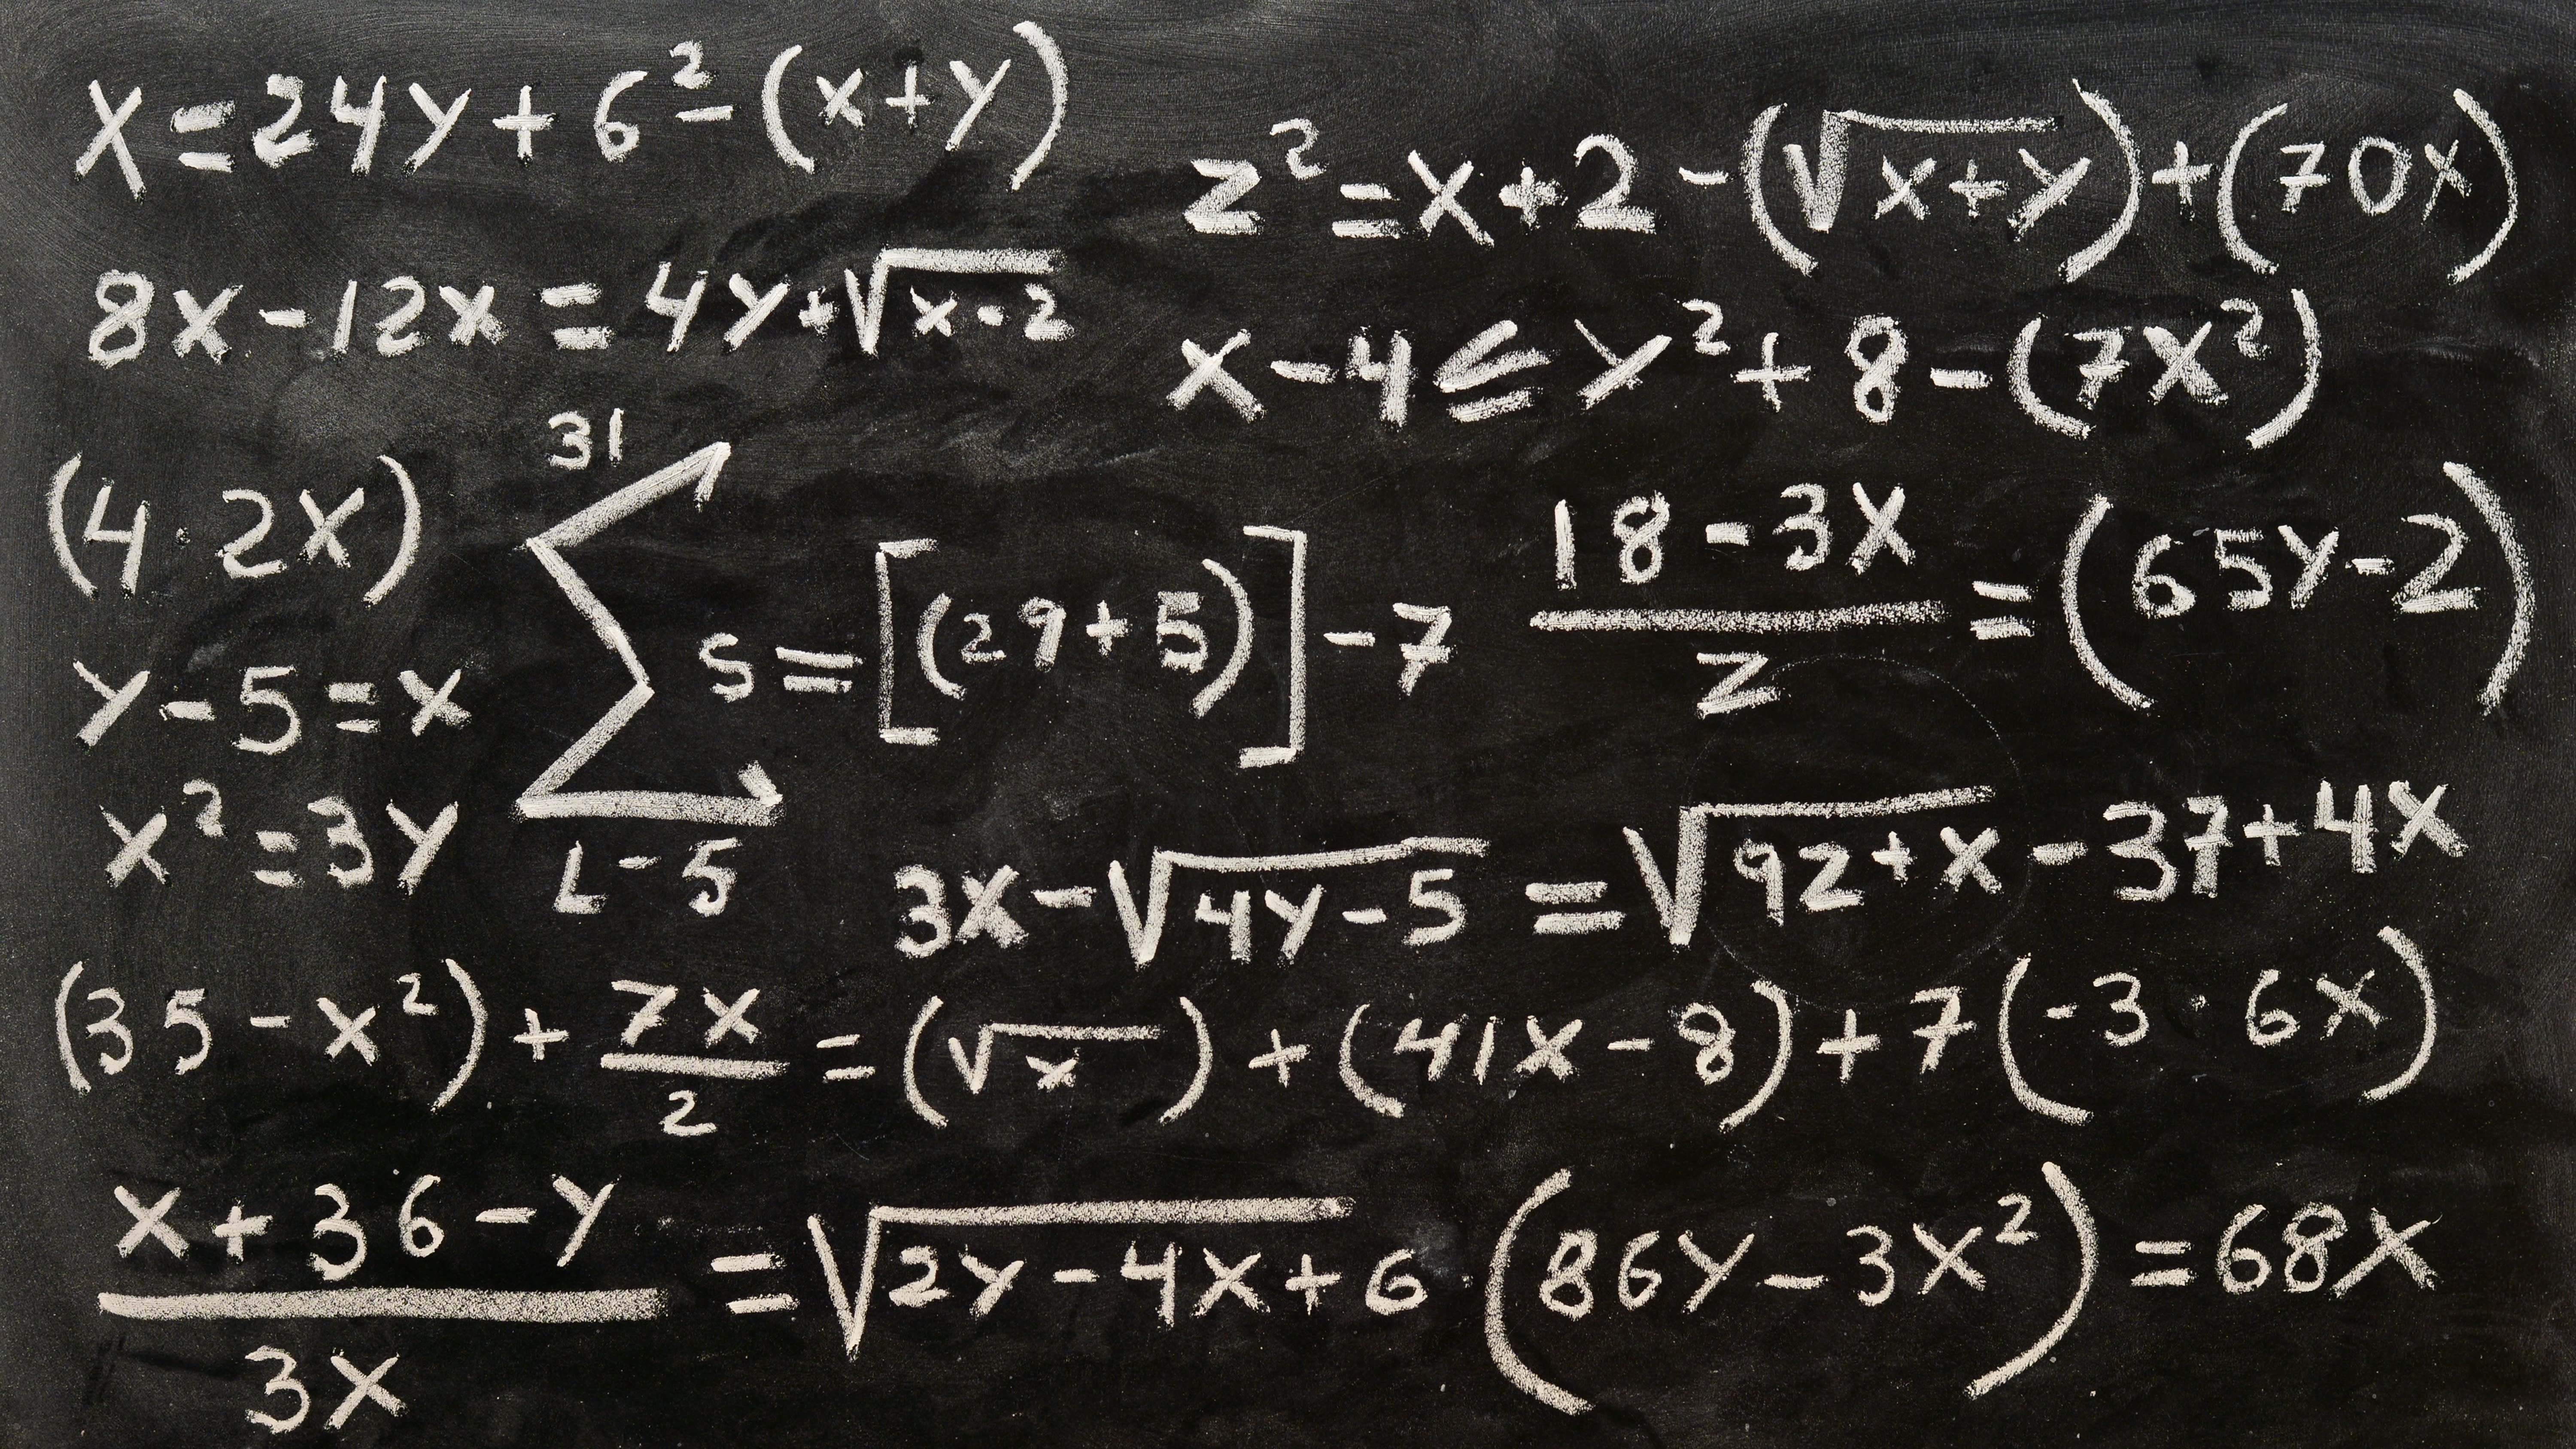 x=24y+6²-(x+y)
z²=x+2-(√x+y)+(70x)
8x-12x=4y+√x-2
x-4≤y²+8-(7x²)
(4·2x)
31
∑ s=[(29+5)]-7
L-5
18-3x
z
=(65y-2)
y-5=x
x²=3y
3x-√4y-5=√92+x-37+4x
(35-x²)+7x/2=(√x)+(41x-8)+7(-3·6x)
x+36-y
3x
=√2y-4x+6(86y-3x²)=68x